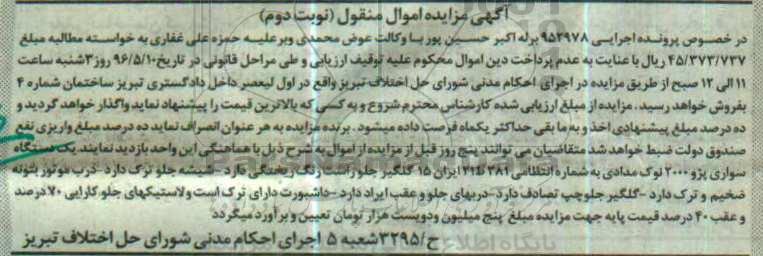 آگهی مزایده اموال منقول (نوبت دوم)
در خصوص پرونده اجرایی ۹۵۲۹۷۸ برله اکبر حسین پور با وکالت عوض محمدی وبر علیه حمزه علی غفاری به خواسته مطالبه مبلغ
۴۵/۳۷۳/۷۳۷ ریال با عنایت به عدم پرداخت دین اموال محکوم علیه توقیف ارزیابی و طی مراحل قانونی در تاریخ ۹۶/۵/۱۰ روز ۳شنبه ساعت
۱۱ الی ۱۲ صبح از طریق مزایده در اجرای احکام مدنی شورای حل اختلاف تبریز واقع در اول لیعصر داخل دادگستری تبریز ساختمان شماره ۴
بفروش خواهد رسید. مزایده از مبلغ ارزیابی شده کارشناس محترم شروع و به کسی که بالاترین قیمت را پیشنهاد نماید واگذار خواهد گردید و
ده درصد مبلغ پیشنهادی اخذ و به ما بقی حداکثر یکماه فرصت داده میشود. برنده مزایده به هر عنوان انصراف نماید ده درصد مبلغ واریزی نفع
صندوق دولت ضبط خواهد شد متقاضیان می توانند پنج روز قبل از مزایده از اموال به شرح ذیل با هماهنگی این واحد بازدید نمایند. یک دستگاه
سواری پژو ۲۰۰۰ نوک مدادی به شماره انتظامی ۳۸۱ ط۲۱ ایران ۱۵ گلگیر جلو راست رنگ ریختگی دارد -شیشه جلو ترک دارد -درب موتور بتونه
ضخیم و ترک دارد -گلگیر جلوچپ تصادف دارد -دربهای جلو و عقب ایراد دارد -داشبورت دارای ترک است ولاستیکهای جلو کارایی ۷۰ درصد
و عقب ۴۰ درصد قیمت پایه جهت مزایده مبلغ پنج میلیون ودویست هزار تومان تعیین و برآورد میگردد
ح/۳۲۹۵ شعبه ۵ اجرای احکام مدنی شورای حل اختلاف تبریز